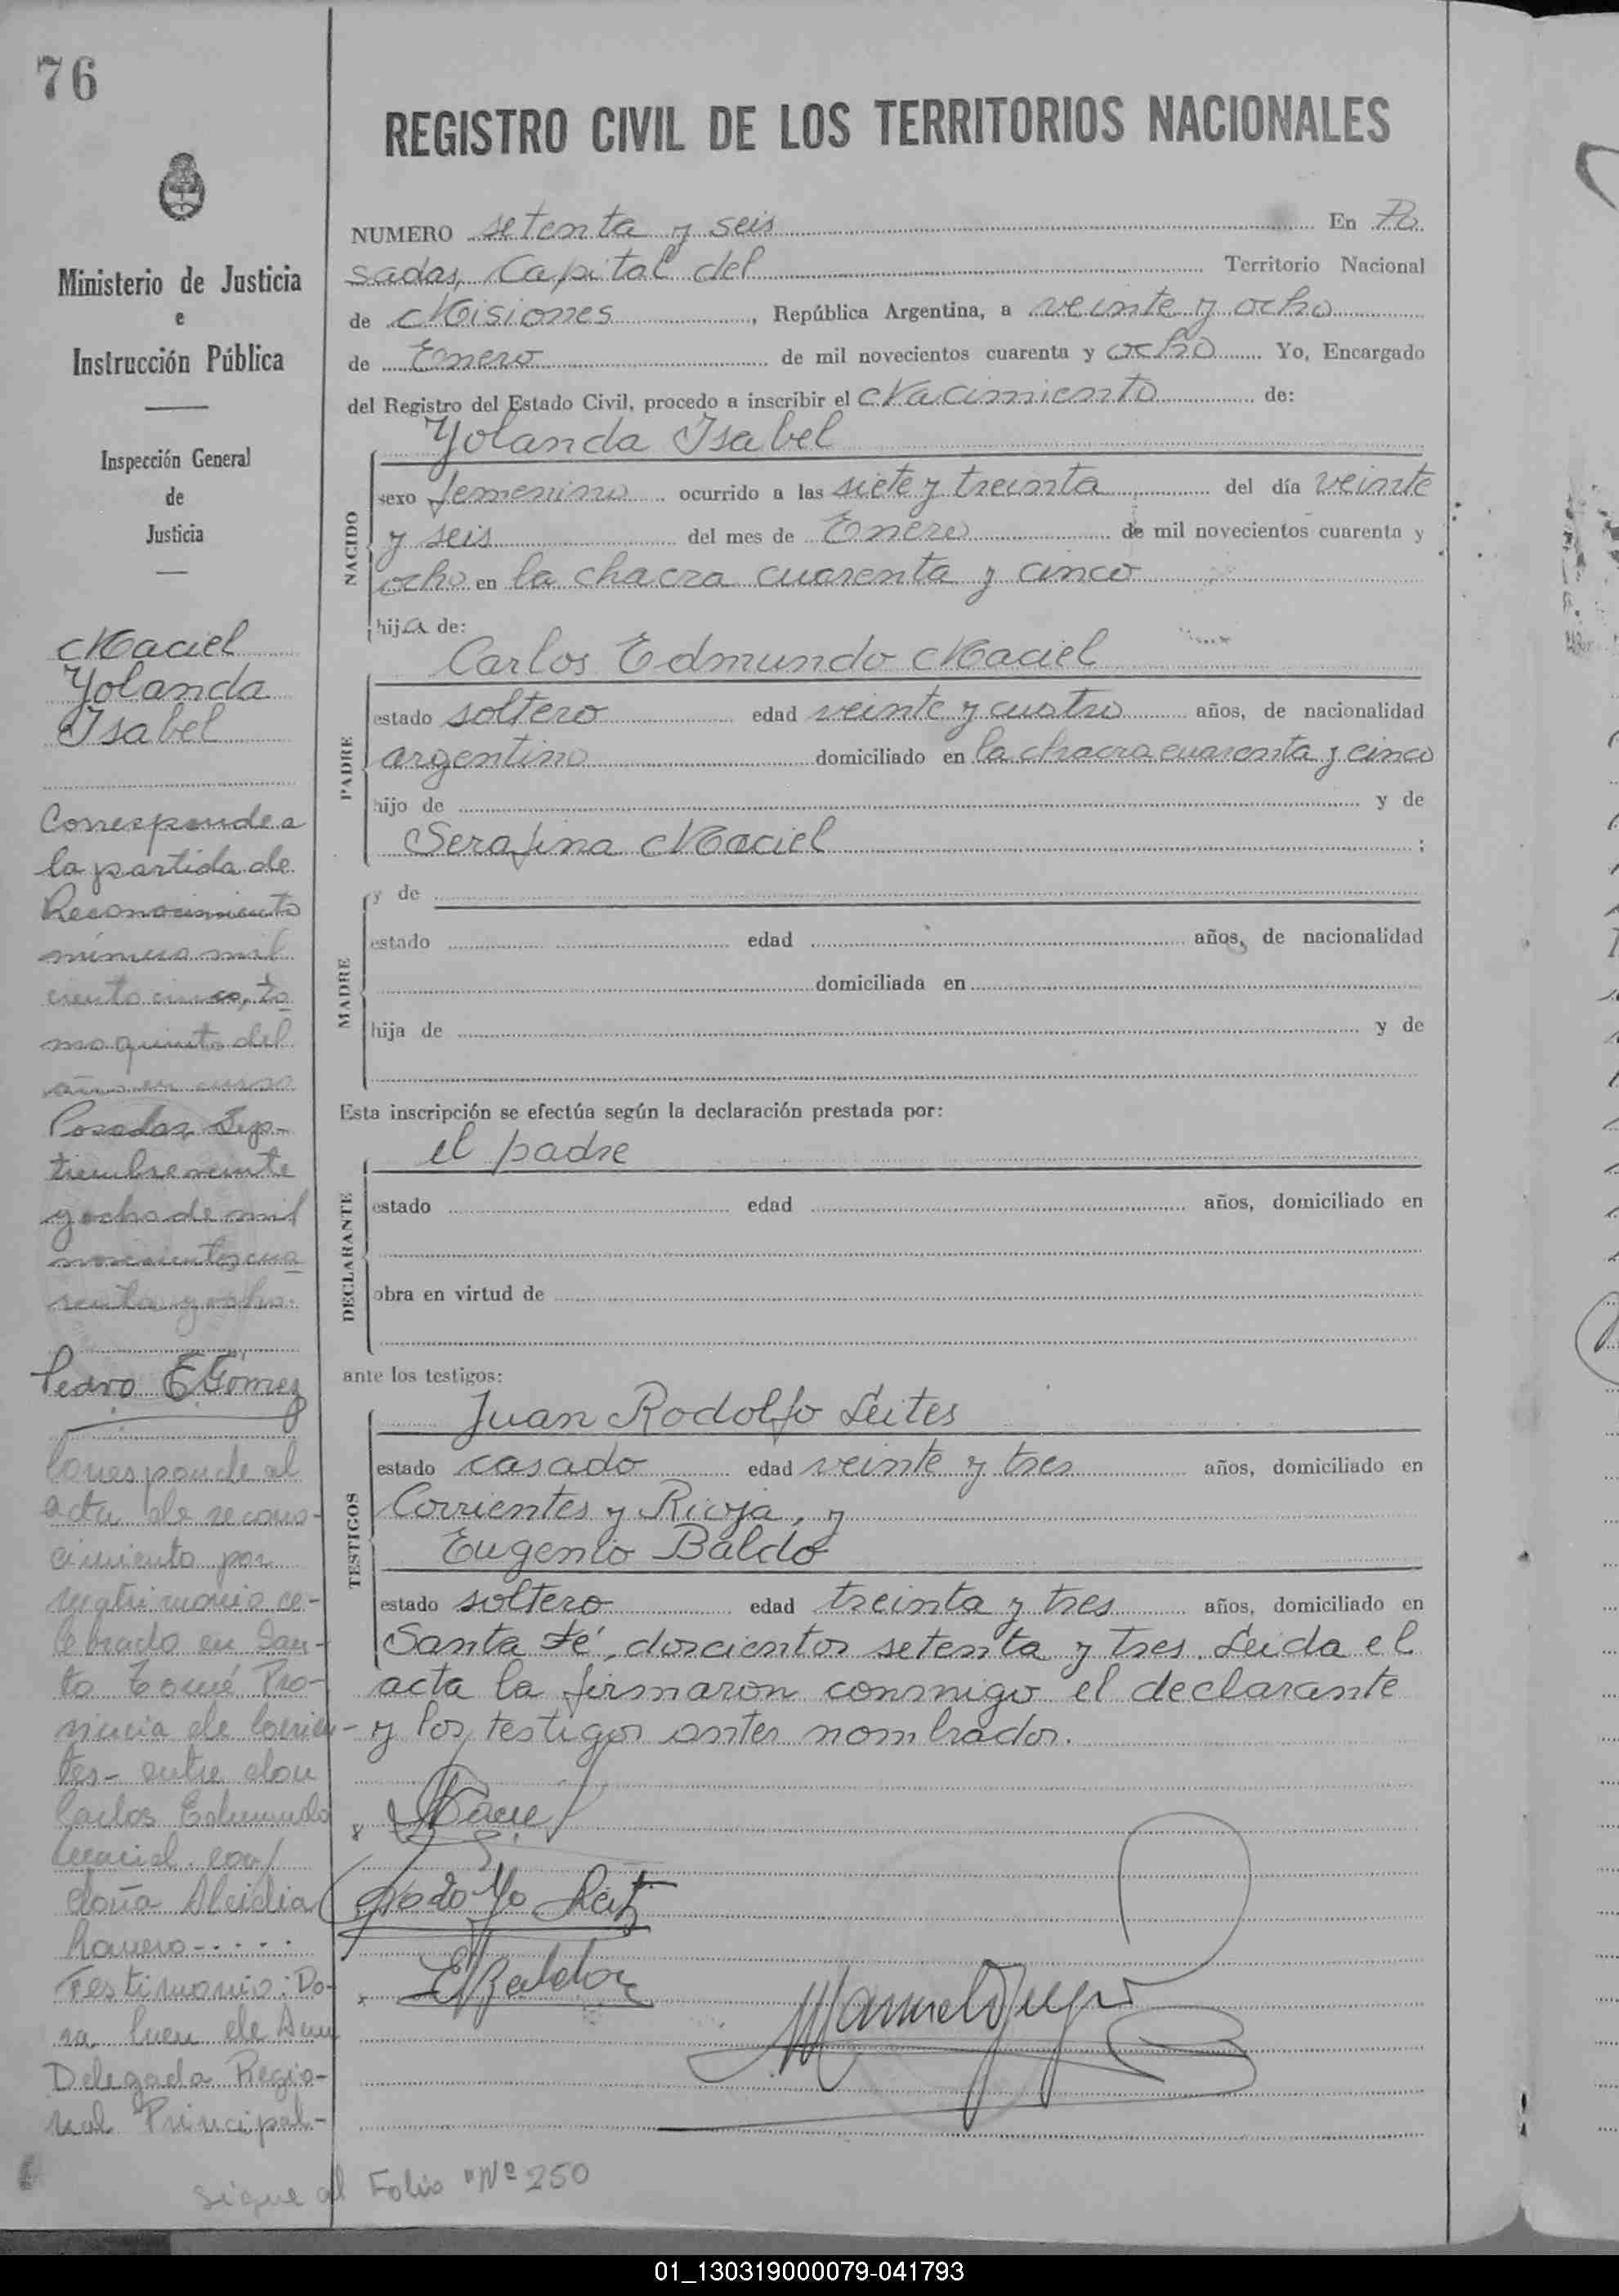 76
Ministerio de Justicia
e
Instrucción Pública
Inspección General
de
Justicia
Maciel
Yolanda
Isabel
Corresponde a
la partida de
Reconocimiento
número mil
ciento cinco, to
mo quinto del
año en curso
Posadas, Sep-
tiembre veinte
y ocho de mil
novecientos cua
renta y ocho.
Pedro E Gómez
Corresponde al
acta de recono-
cimiento por
matrimonio ce-
lebrado en San-
to Tomé Pro-
vincia de Corrien-
tes- entre don
Carlos Edmundo
Maciel con
doña Alcidia
Romero-
Testimonio: Do-
ra de
Delegada Regio-
nal Principal.-
REGISTRO CIVIL DE LOS TERRITORIOS NACIONALES
NUMERO setenta y seis En Po
sadas, Capital del Territorio Nacional
de Misiones, República Argentina, a veinte y ocho
de Enero de mil novecientos cuarenta y ocho Yo, Encargado
del Registro del Estado Civil, procedo a inscribir el Nacimiento de:
Yolanda Isabel
NACIDO
sexo femenino ocurrido a las siete y treinta del día veinte
y seis del mes de Enero de mil novecientos cuarenta y
ocho en la chacra cuarenta y cinco
hija de:
Carlos Edmundo Maciel
PADRE
estado soltero edad veinte y cuatro años, de nacionalidad
argentino domiciliado en la chacra cuarenta y cinco
hijo de y de
Serafina Maciel ;
MADRE
y de
estado edad años, de nacionalidad
domiciliada en
hija de y de
Esta inscripción se efectúa según la declaración prestada por:
el padre
DECLARANTE
estado edad años, domiciliado en
obra en virtud de
ante los testigos:
Juan Rodolfo Leites
TESTIGOS
estado casado edad veinte y tres años, domiciliado en
Corrientes y Rioja, y
Eugenio Baldo
estado soltero edad treinta y tres años, domiciliado en
Santa Fé, doscientos setenta y tres. Leida el
acta la firmaron conmigo el declarante
y los testigos antes nombrados.
EBaldo
Sigue al Folio "Nº 250
01_130319000079-041793